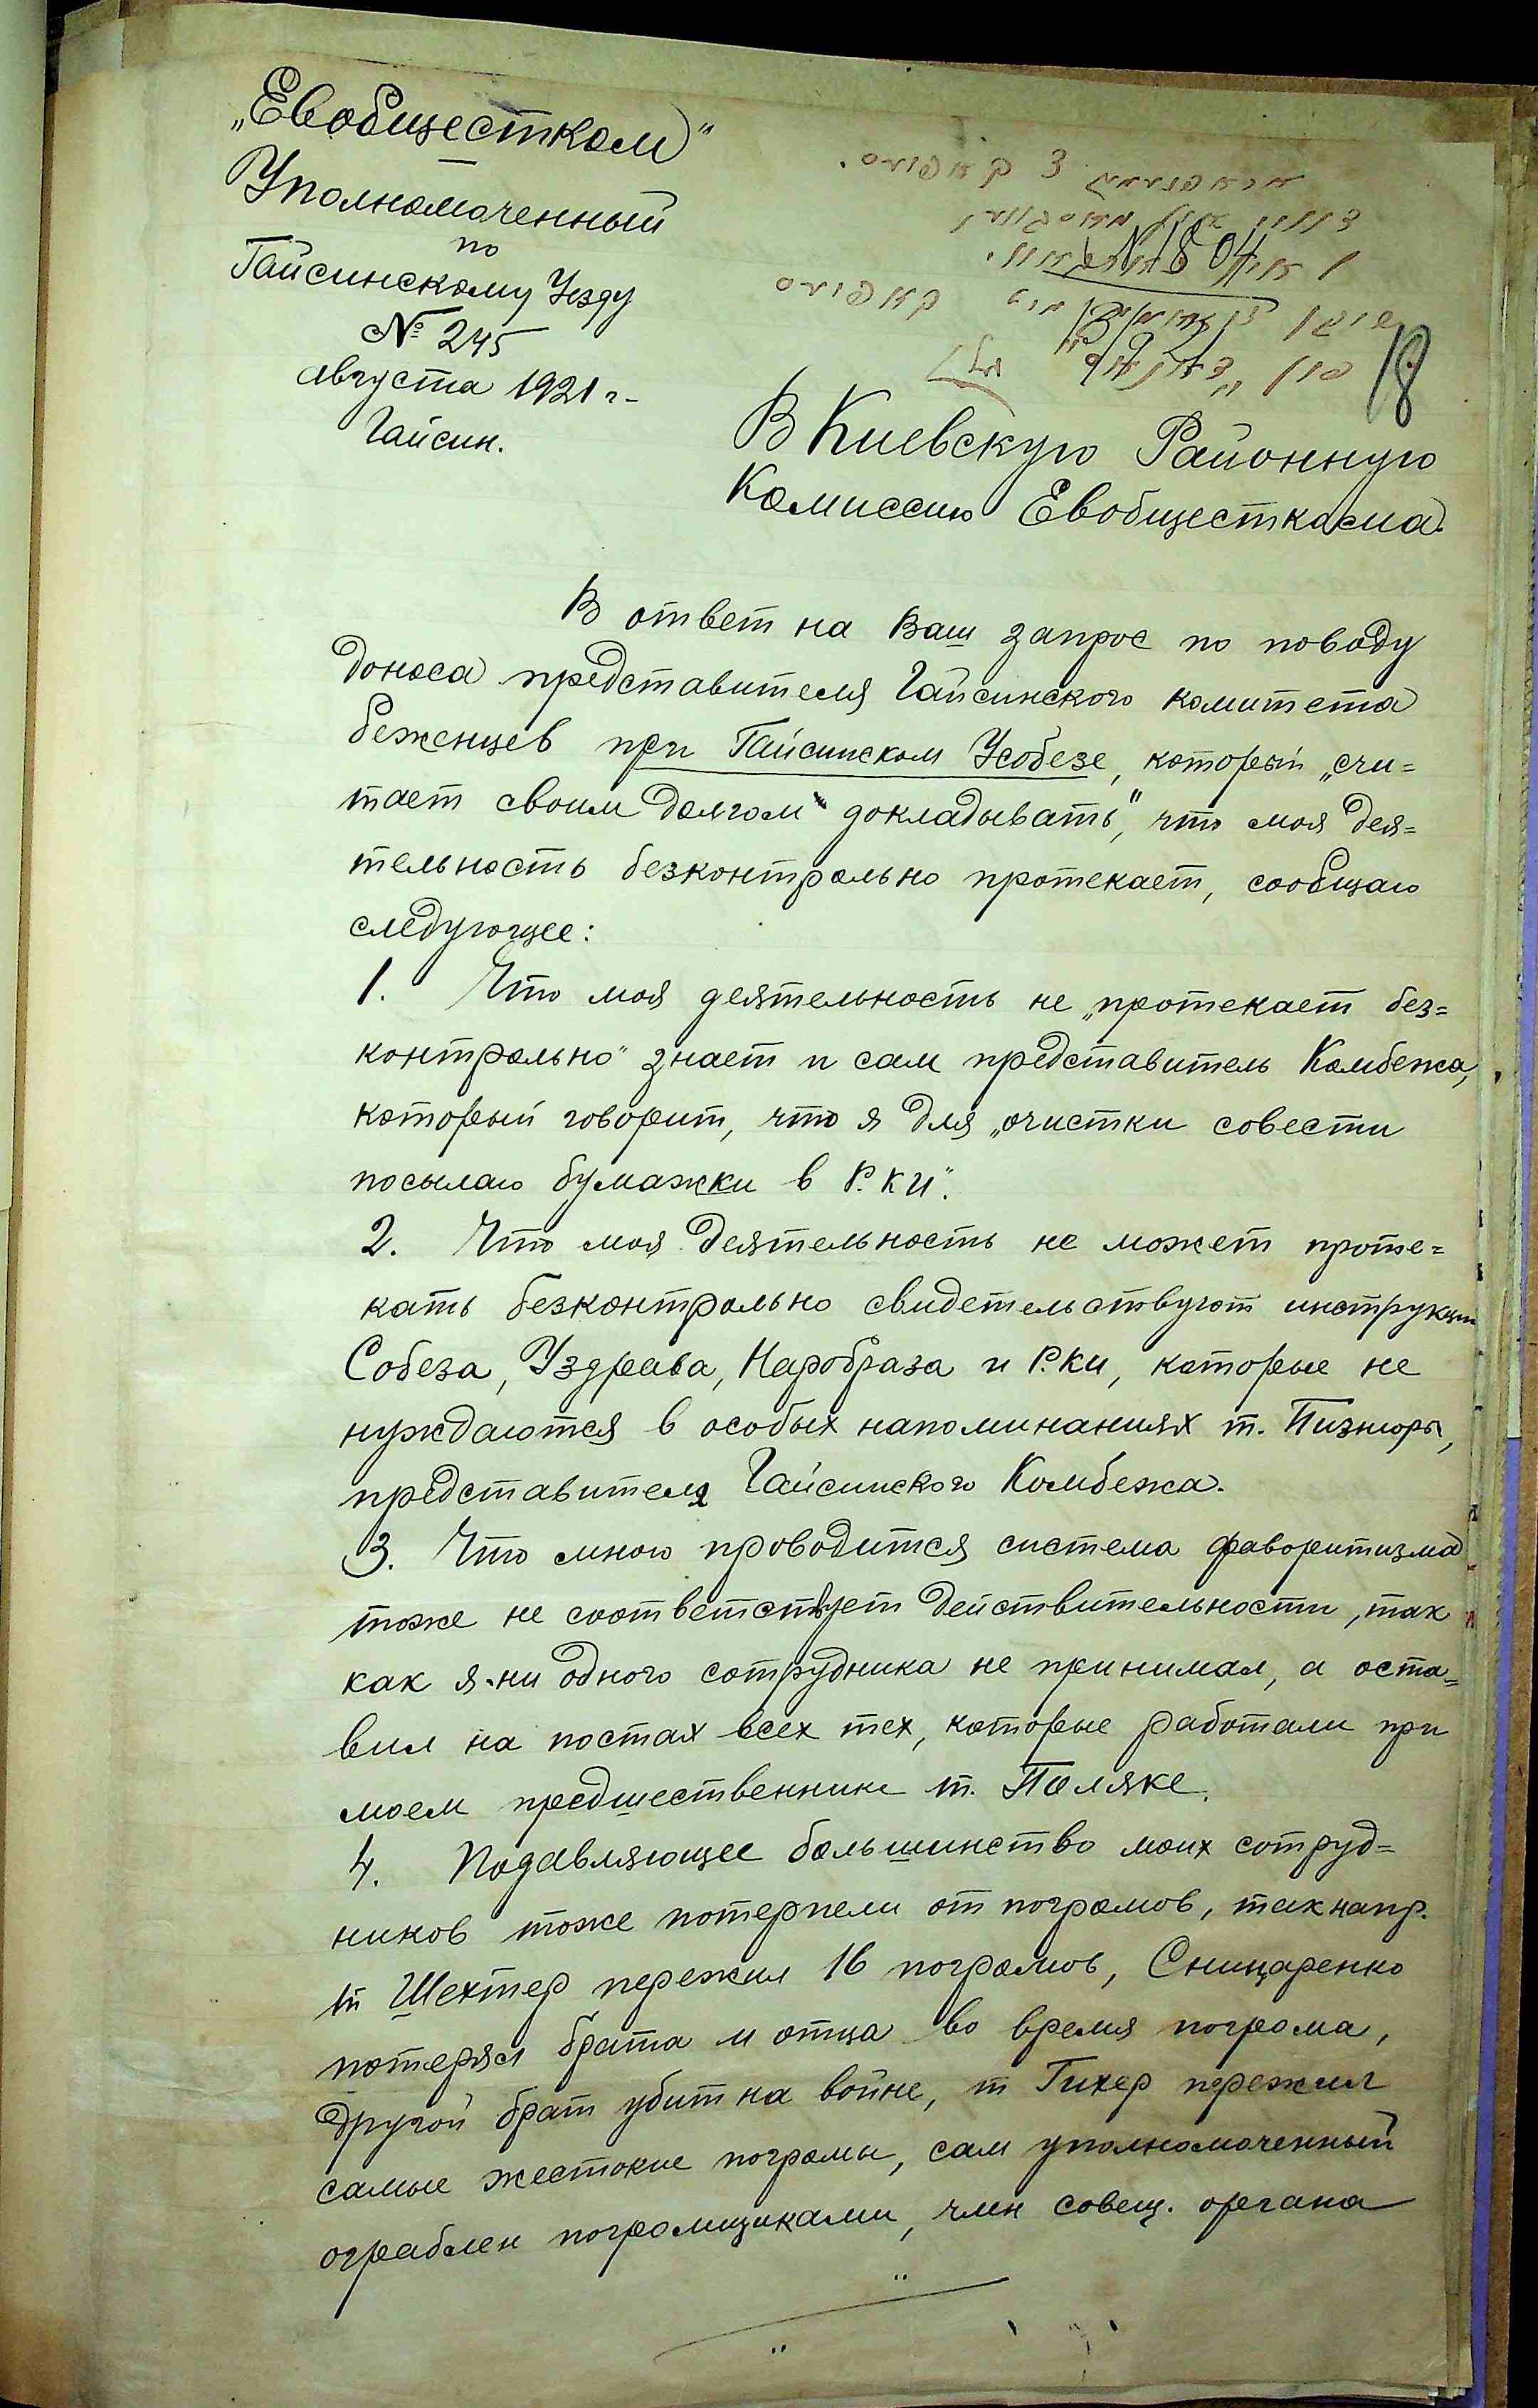 „Евобщестком"
Уполномоченный
по
Гайсинскому Уезду
№ 245
августа 1921 г-
Гайсин.
N 1804
18
В Киевскую Районную
Комиссию Евобщесткома.
В ответ на Ваш запрос по поводу
доноса представителя Гайсинского комитета
беженцев при Гайсинском Усобезе, который „счи=
тает своим долгом докладывать", что моя дея=
тельность безконтрольно протекает, сообщаю
следующее:
1. Что моя деятельность не „протекает без=
контрольно" знает и сам представитель Комбежа,
который говорит, что я для „очистки совести
посылаю бумажки в Р.К.И".
2. Что моя деятельность не может проте=
кать безконтрольно свидетельствуют инструкции
Собеза, Уздрава, Наробраза и Р.К.И, которые не
нуждаются в особых напоминаниях т. Пизнюры,
представителя Гайсинского Комбежа.
3. Что мною проводится система фаворитизма
тоже не соответствует действительности, так
как я ни одного сотрудника не принимал, а оста=
вил на постах всех тех, которые работали при
моем предшественнике т. Поляке.
4. Подавляющее большинство моих сотруд=
ников тоже потерпели от погромов, так напр.
т Шехтер пережил 16 погромов, Сницаренко
потерял брата и отца во время погрома,
другой брат убит на войне, т Гихер пережил
самые жестокие погромы, сам уполномоченный
ограблен погромщиками, член совещ. органа